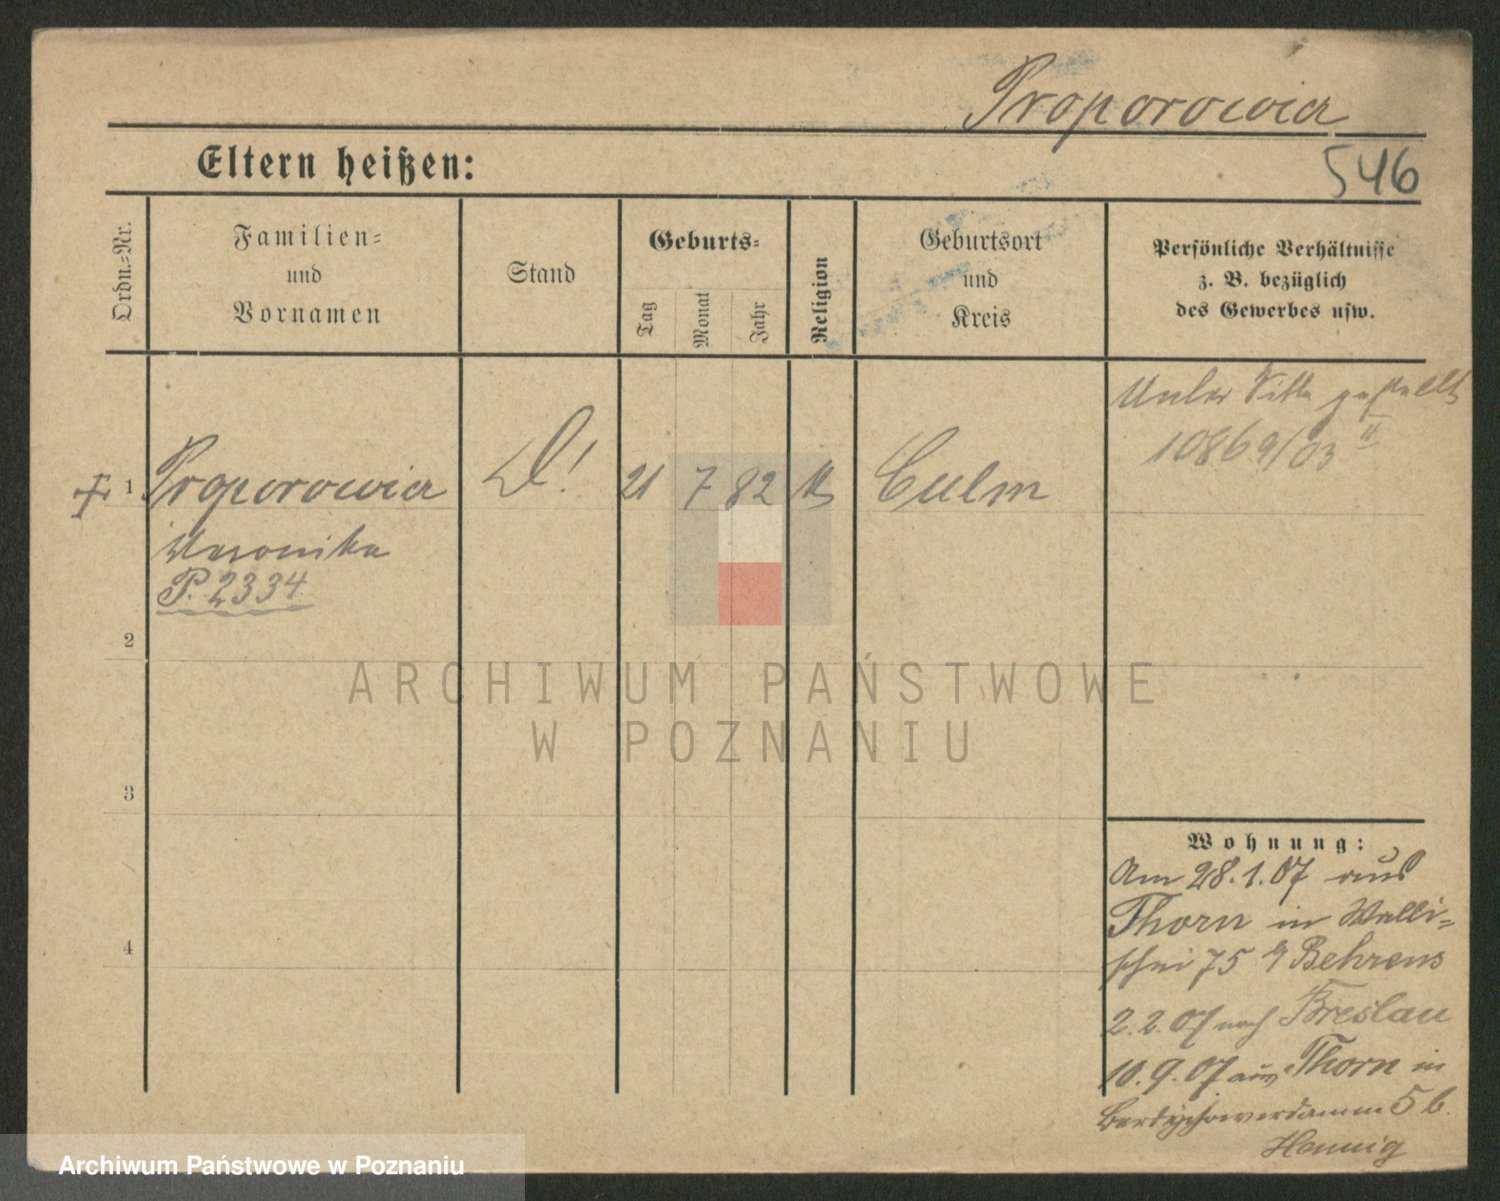 Proporowicz
546
Eltern heißen:
Ordn.-Nr.
Familien-
und
Vornamen
Stand
Geburts-
Tag
Monat
Jahr
Religion
Geburtsort
und
Kreis
Persönliche Verhältnisse
z. B. bezüglich
des Gewerbes usw.
Unter Sitte gestellt
10869/03 II
1 Proporowicz D! 21 7 82 K Culm
Veronika
P. 2334
2
3
4
Wohnung:
Am 28.1.07 aus
Thorn in Walli-
schei 75 b/ Behrens
2.2.07 nach Breslau
10.9.07 aus Thorn in
Berdychowerdamm 5 b.
Hennig
ARCHIWUM PAŃSTWOWE
W POZNANIU
Archiwum Państwowe w Poznaniu